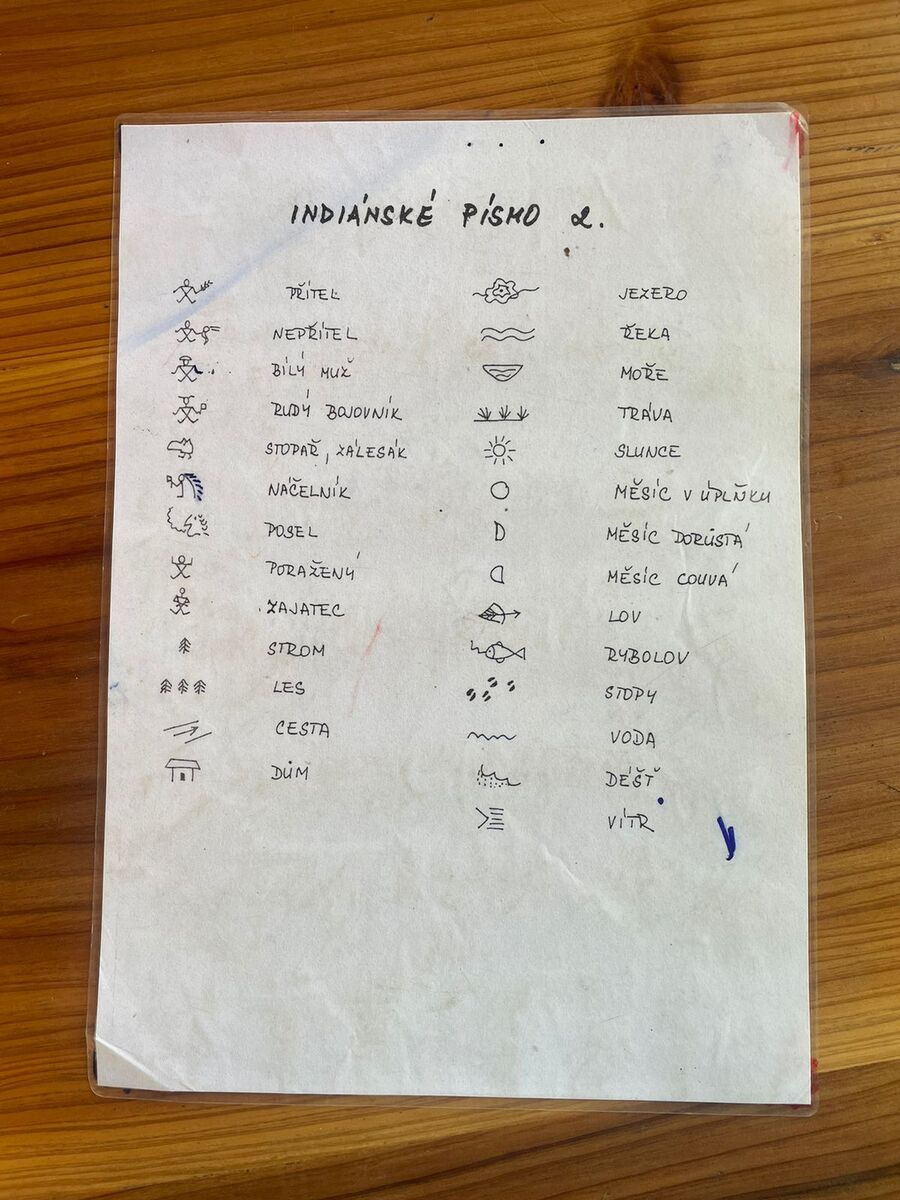 INDIÁNSKÉ PÍSMO 2.
PŘÍTEL
NEPŘÍTEL
BÍLÝ MUŽ
RUDÝ BOJOVNÍK
STOPAŘ, ZÁLESÁK
NÁČELNÍK
POSEL
PORAŽENÝ
ZAJATEC
STROM
LES
CESTA
DŮM
JEZERO
ŘEKA
MOŘE
TRÁVA
SLUNCE
MĚSÍC V ÚPLŇKU
MĚSÍC DORŮSTÁ
MĚSÍC COUVÁ
LOV
RYBOLOV
STOPY
VODA
DÉŠŤ
VÍTR